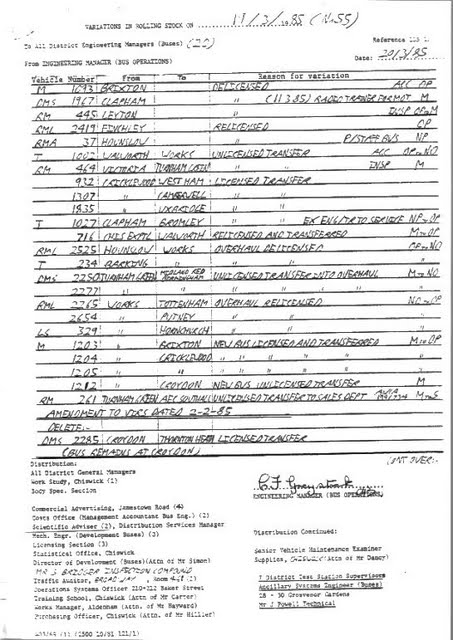 VARIATIONS IN ROLLING STOCK ON 19/3/1985 (N.55)
To All District Engineering Managers (Buses) (20)
Reference
From ENGINEERING MANAGER (BUS OPERATIONS)
Date: 20/3/85
Vehicle Number From To Reason for variation
M 1093 BRIXTON DELICENSED ACC OP
DMS 1967 CLAPHAM " (11385) RADIO TRAINER FOR MOT M
RM 445 LEYTON " INSP OP→M
RML 2419 FINCHLEY RELICENSED OP
RMA 37 HOUNSLOW " P/STAFF BUS NP
T 1002 WALWORTH WORKS UNLICENSED TRANSFER ACC OP→NO
RM 464 VICTORIA TURNHAM GREEN " " INSP M
932 CRICKLEWOOD WEST HAM LICENSED TRANSFER
1307 " CAMBERWELL " "
1835 " UXBRIDGE " "
T 1027 CLAPHAM BROMLEY " " EX ENG/TR TO SERVICE NP→OP
716 CHIS EXPTL WALWORTH RELICENSED AND TRANSFERRED M→OP
RML 2525 HOUNSLOW WORKS OVERHAUL DELICENSED OP→NO
T 234 BARKING " " " "
DMS 2250 TURNHAM GREEN MIDLAND RED BIRMINGHAM UNLICENSED TRANSFER INTO OVERHAUL M→NO
2277 " " " " "
RML 2765 WORKS TOTTENHAM OVERHAUL RELICENSED NO→OP
2654 " PUTNEY " " "
LS 329 " HORNCHURCH " " "
M 1203 " BRIXTON NEW BUS LICENSED AND TRANSFERRED M→OP
1204 " CRICKLEWOOD " " " " "
1205 " " " " " " "
1212 " CROYDON NEW BUS UNLICENSED TRANSFER M
RM 261 TURNHAM GREEN AEC SOUTHALL UNLICENSED TRANSFER TO SALES DEPT M→S
AMENDMENT TO VIRS DATED 2-2-85
DELETE:-
DMS 2285 CROYDON THORNTON HEATH LICENSED TRANSFER
(BUS REMAINS AT CROYDON)
CONT OVER:-
Distribution:
All District General Managers
Work Study, Chiswick (1)
Body Spec. Section
ENGINEERING MANAGER (BUS OPERATIONS)
Commercial Advertising, Jamestown Road (4)
Costs Office (Management Accountant Bus Eng.) (2)
Scientific Adviser (2), Distribution Services Manager
Mech. Engr. (Development Buses) (3)
Licensing Section (3)
Statistical Office, Chiswick
Director of Development (Buses)(Attn of Mr Simon)
MR S BRIDGER INSPECTION COMPOUND
Traffic Auditor, BROADWAY, Room
Operations Systems Officer 210-212 Baker Street
Training School, Chiswick (Attn of Mr Carter)
Works Manager, Aldenham (Attn. of Mr Hayward)
Purchasing Officer, Chiswick (Attn. of Mr Hillier)
Distribution Continued:
Senior Vehicle Maintenance Examiner
Supplies, CHISWICK (Attn of Mr Dancy)
7 District Test Station Supervisors
Ancillary Systems Engineer (Buses)
28 - 30 Grosvenor Gardens
Mr J Powell Technical